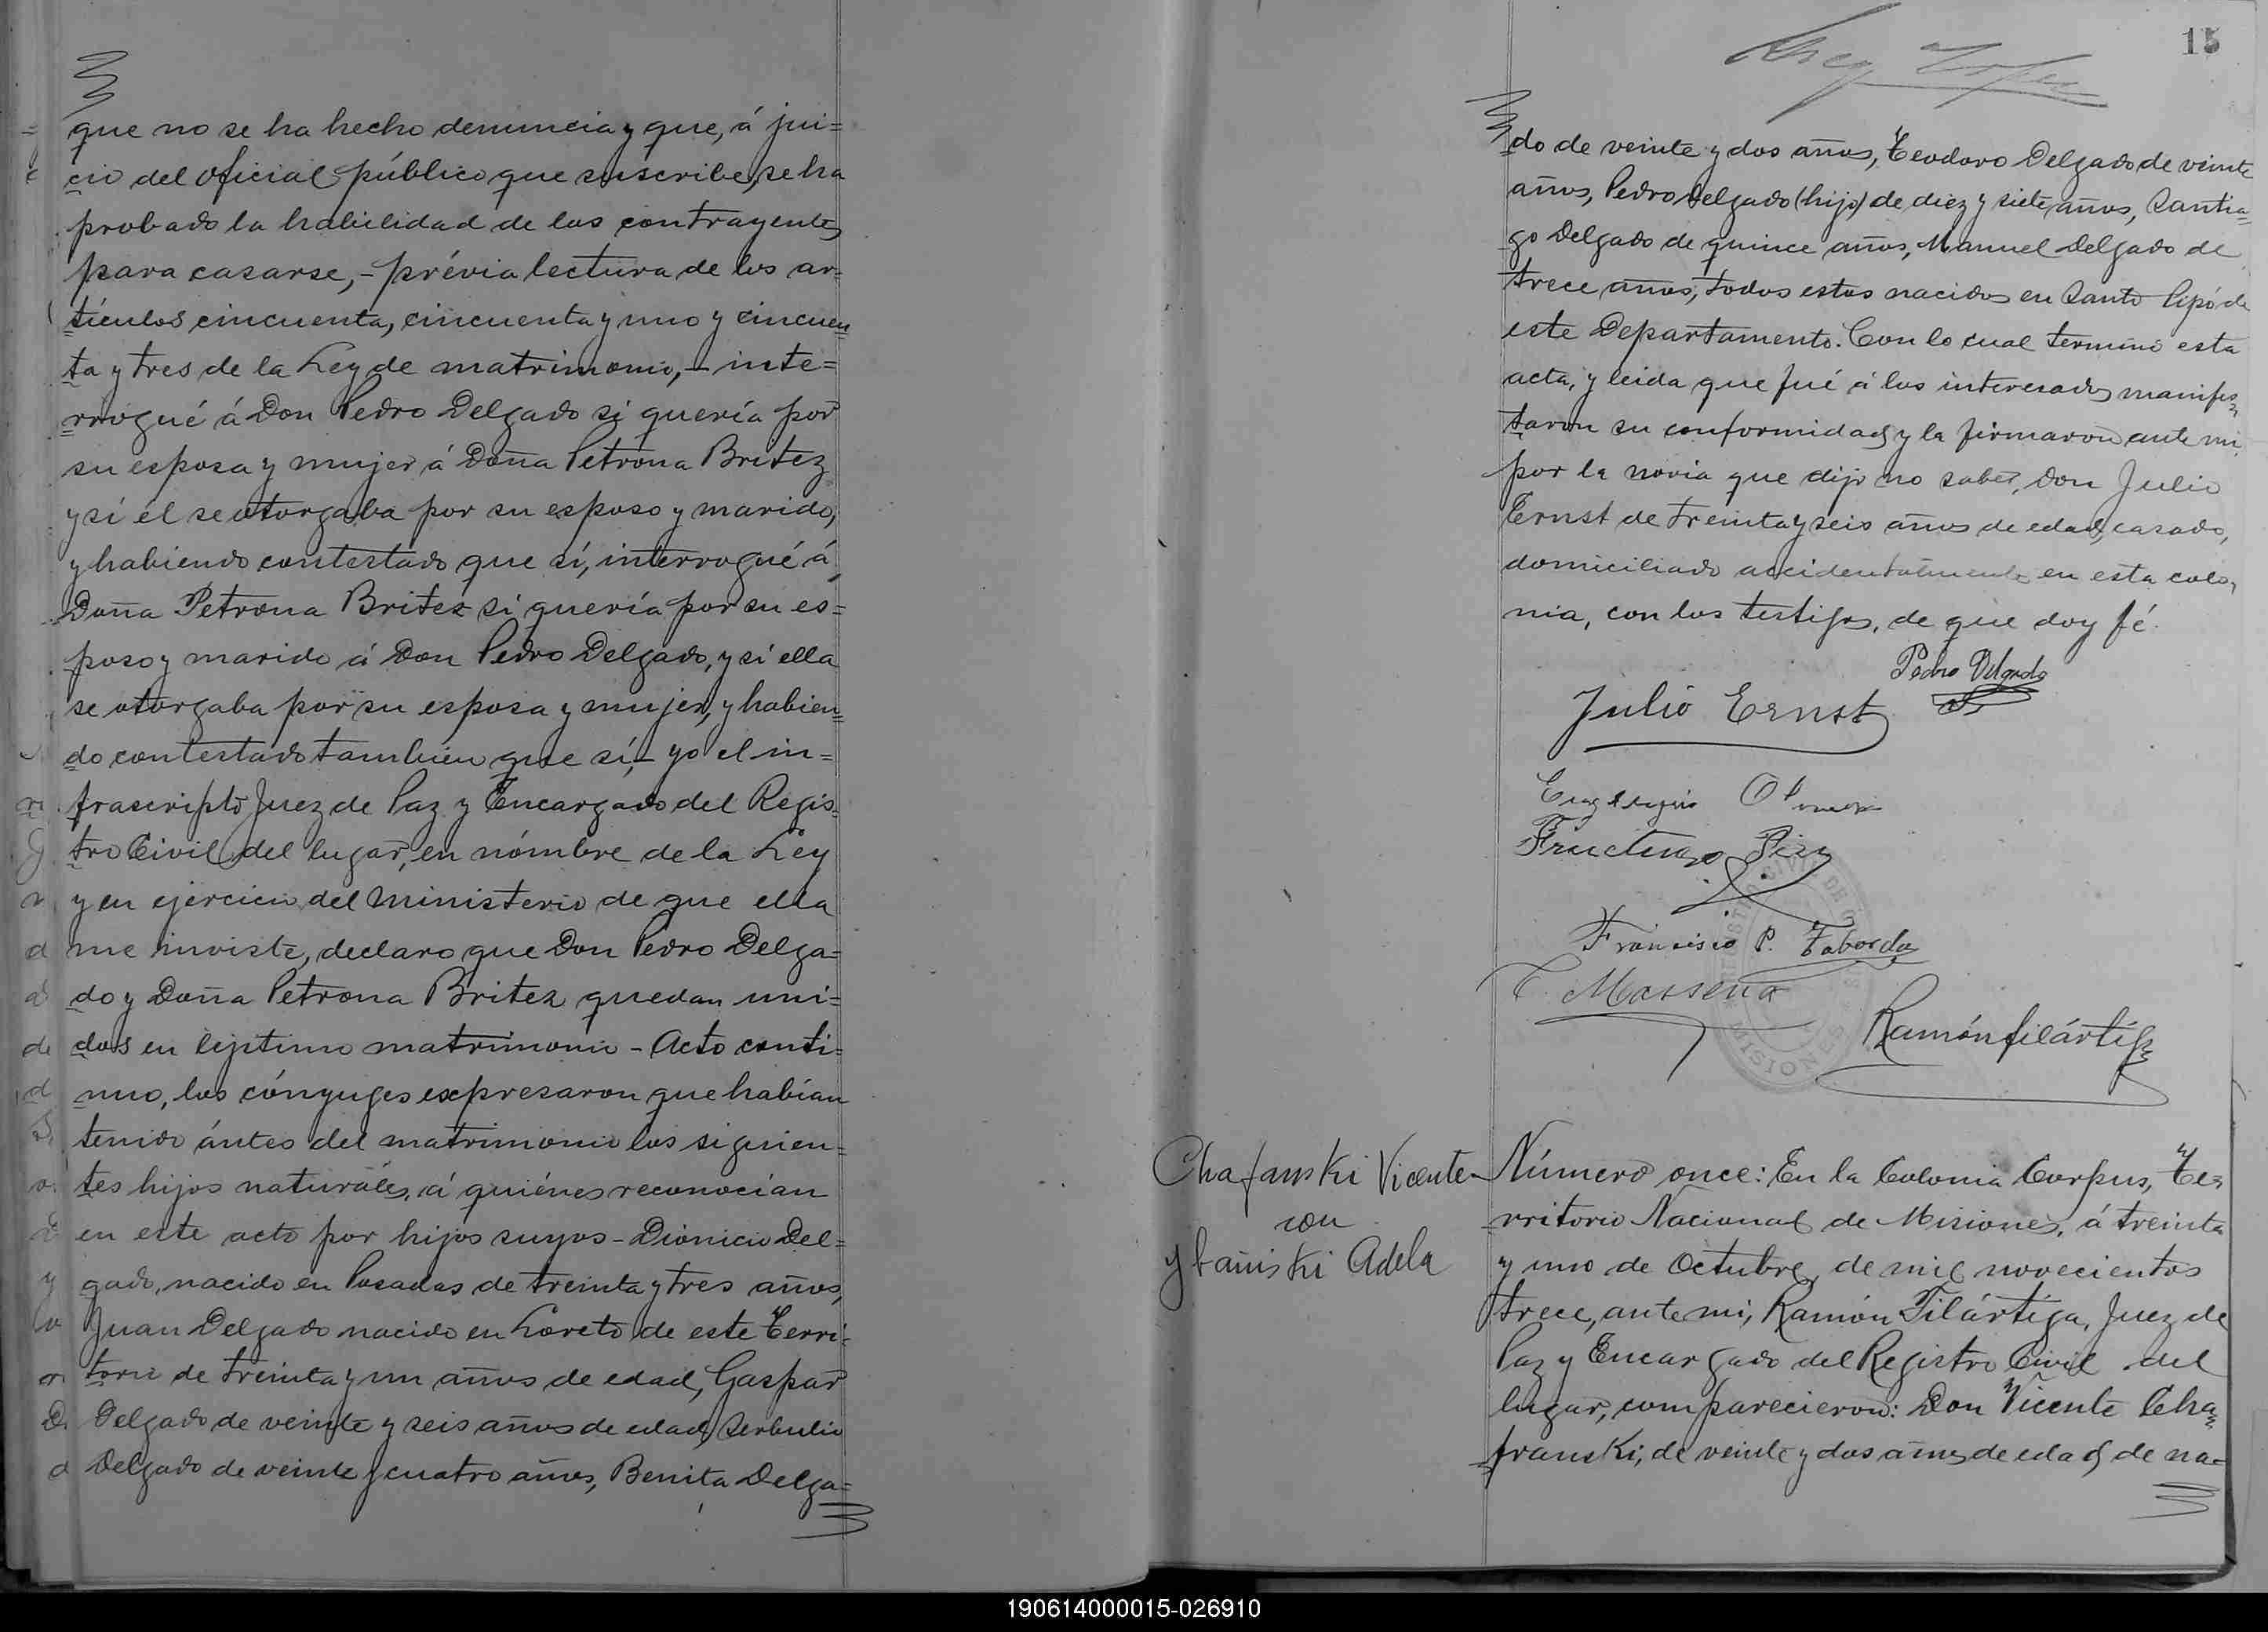 que no se ha hecho denuncia y que, á jui=
cio del oficial público que suscribe, se ha
probado la habilidad de los contrayentes
para casarse, - prévia lectura de los ar=
tículos cincuenta, cincuenta y uno y cincuen
ta y tres de la Ley de matrimonio, - inte=
rrogué á Don Pedro Delgado si quería por
su esposa y mujer á Doña Petrona Britez
y si él se otorgaba por su esposo y marido,
y habiendo contestado que sí, interrogué á
Doña Petrona Britez si quería por su es=
poso y marido á Don Pedro Delgado, y si ella
se otorgaba por su esposa y mujer, y habien
do contestado tambien que sí, - yo el in=
frascripto Juez de Paz y Encargado del Regis
tro Civil del lugar, en nómbre de la Ley
y en ejercicio del ministerio de que ella
me inviste, declaro que Don Pedro Delga=
do y Doña Petrona Britez quedan uni=
dos en lejítimo matrimonio - Acto conti=
nuo, los cónyuges expresaron que habían
tenido ántes del matrimonio los siguien=
tes hijos naturales, á quiénes reconocían
en este acto por hijos suyos - Dionicio Del=
gado, nacido en Posadas de treinta y tres años,
Juan Delgado nacido en Loreto de este Terri=
torio de treinta y un años de edad, Gaspar
Delgado de veinte y seis años de edad, Serbulio
Delgado de veinte y cuatro años, Benita Delga=
15
do de veinte y dos años, Teodoro Delgado de veinte
años, Pedro Delgado (hijo) de diez y siete años, Santia=
go Delgado de quince años, Manuel Delgado de
trece años, todos estos nacidos en Santo Pipó de
este Departamento. Con lo cual terminó esta
acta, y leida que fué á los interesados manifes=
taron su conformidad y la firmaron ante mi,
por la novia que dijo no saber, Don Julio
Ernst de treinta y seis años de edad, casado,
domiciliado accidentalmente en esta colo,
nia, con los testigos, de que doy fé.
Pedro Delgado
Julio Ernst
Fructuoso
Francisco P. Taborda
Massena
Ramón Filártiga
MISIONES
Chafanski Vicente
con
Ybaniski Adela
Número once: En la Colonia Corpus, Te=
rritorio Nacional de Misiones, á treinta
y uno de Octubre, de mil novecientos
trece, ante mi, Ramón Filártiga, Juez de
Paz y Encargado del Registro Civil del
lugar, comparecieron: Don Vicente Cha=
franski, de veinte y dos años de edad, de na=
190614000015-026910